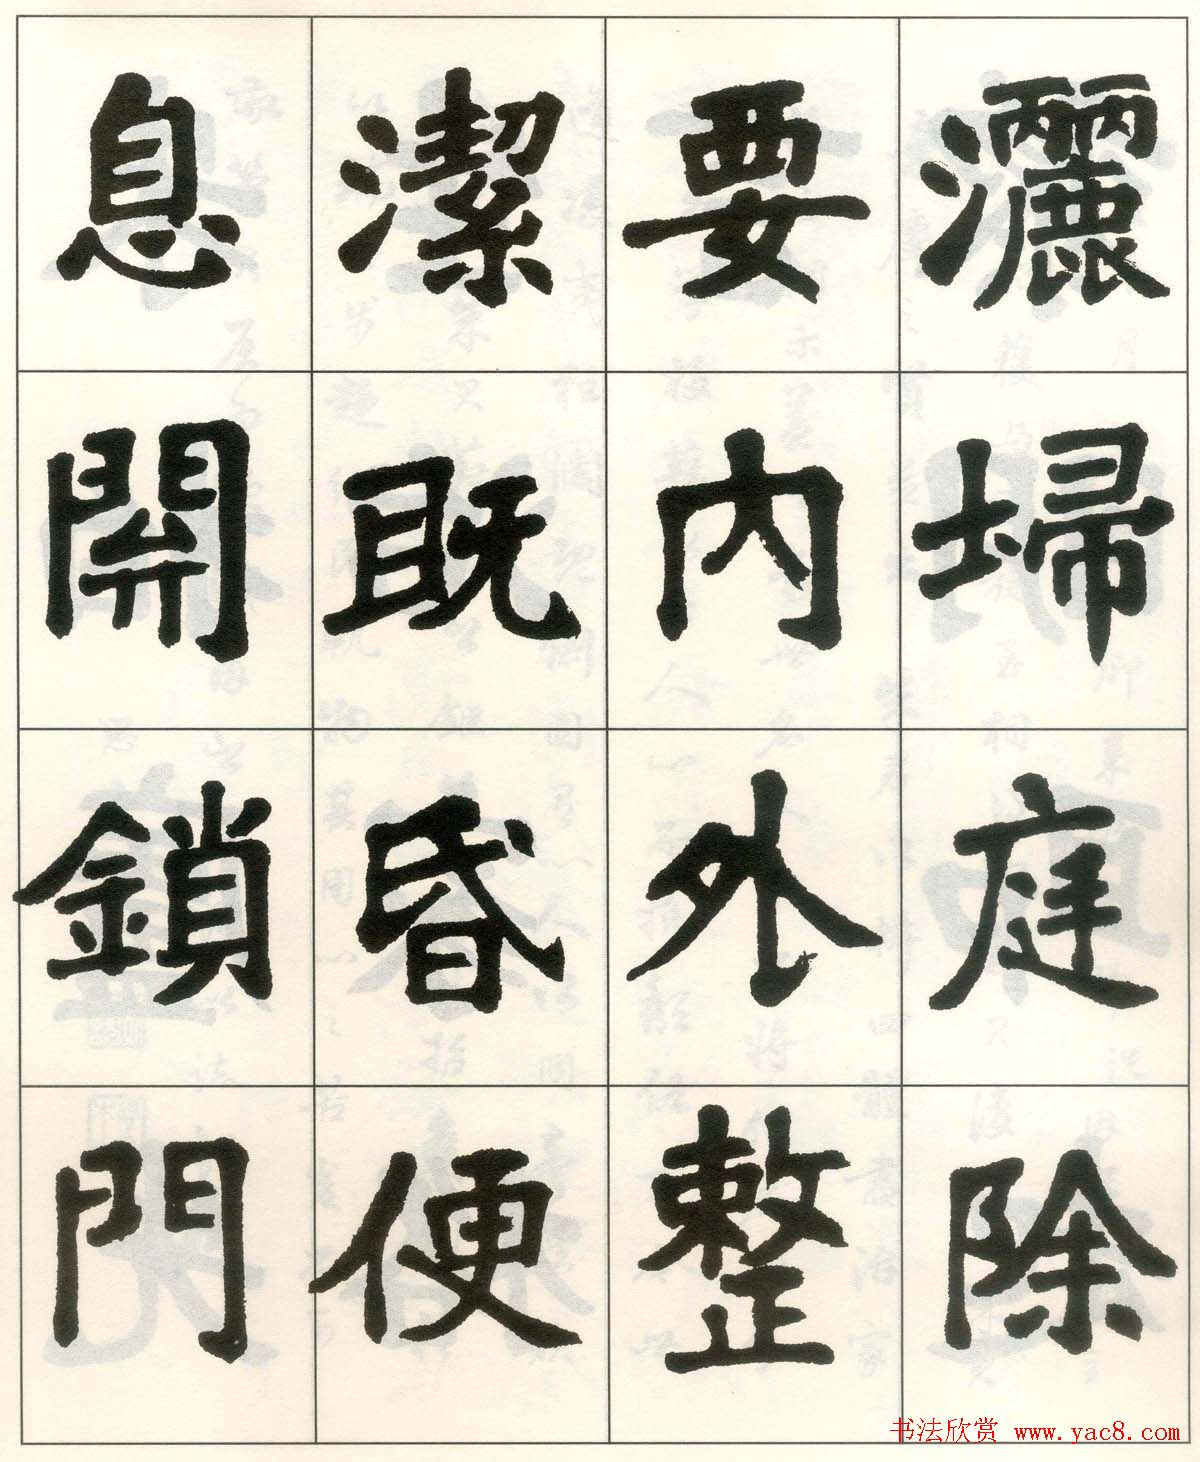 灑埽庭除
要內外整
潔既昏便
息關鎖門
书法欣赏 www.yac8.com